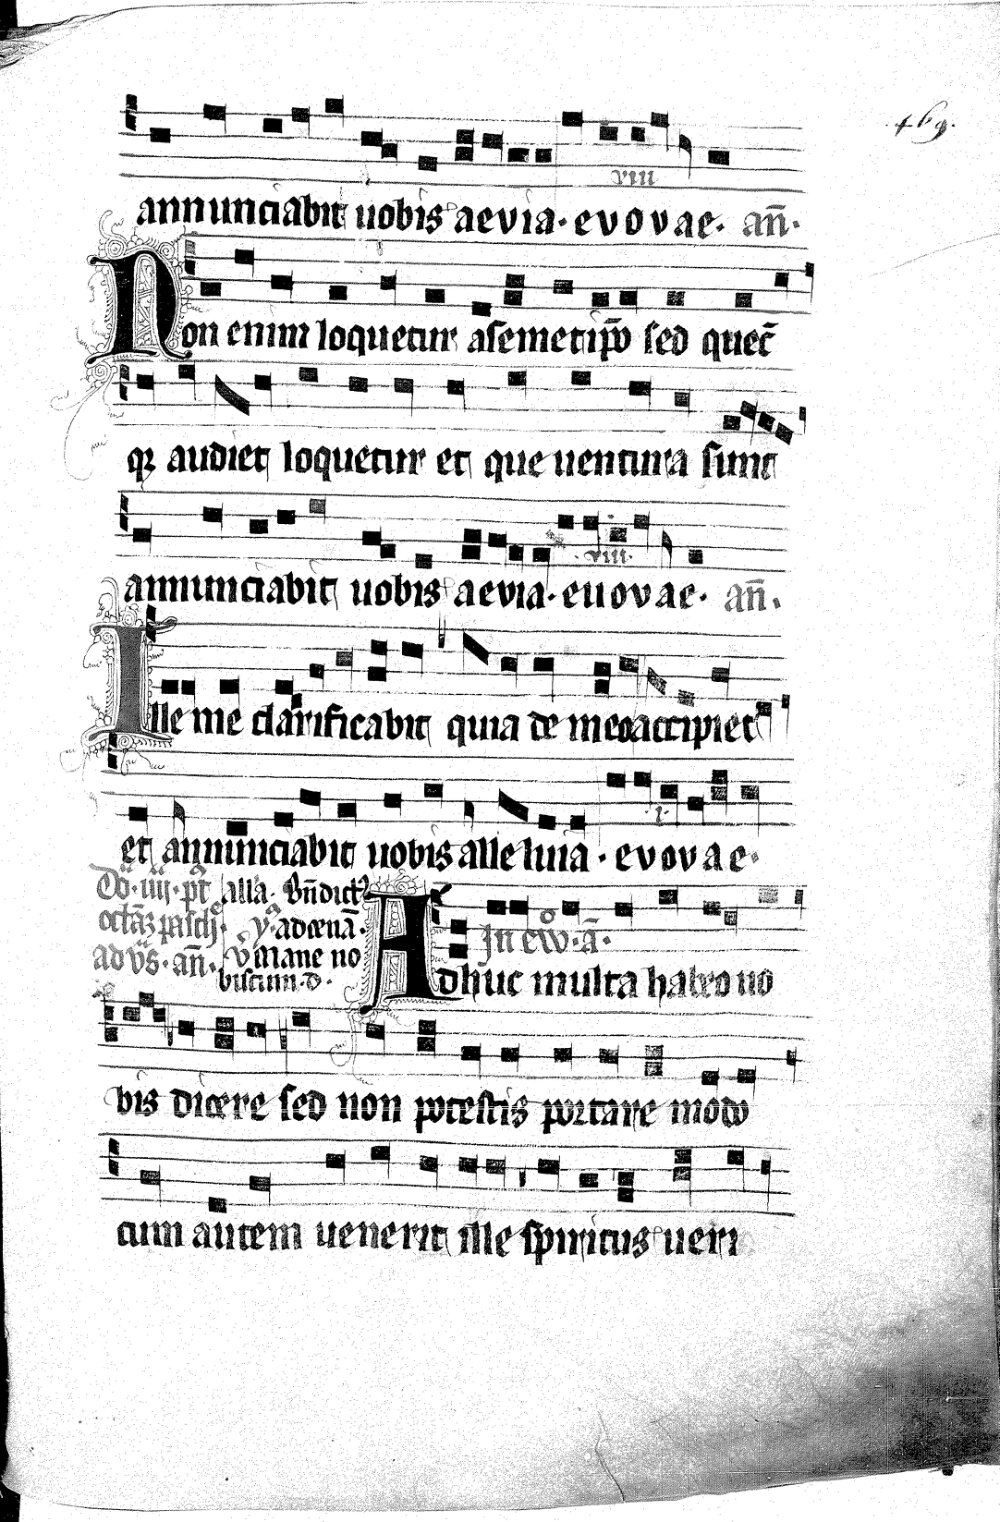 469.
viii
annunciabit uobis aevia · evovae · añ ·
Non enim loquetur asemetip̄o sed quec̄
qꝫ audiet loquetur et que uentura sunt
viii
annunciabit uobis aevia · euovae · añ ·
Ille me clarificabit quia de meo accipiet
·i·
et annunciabit uobis alleluia · evovae ·
alla · bn̄dict⁹
ad cenā ·
ad vs̄ · añ · v̄ Mane no
biscum · d ·
In ew̄ · ā ·
Adhuc multa habeo uo
bis dicere sed non potestis portare modo
cum autem uenerit ille spiritus ueri